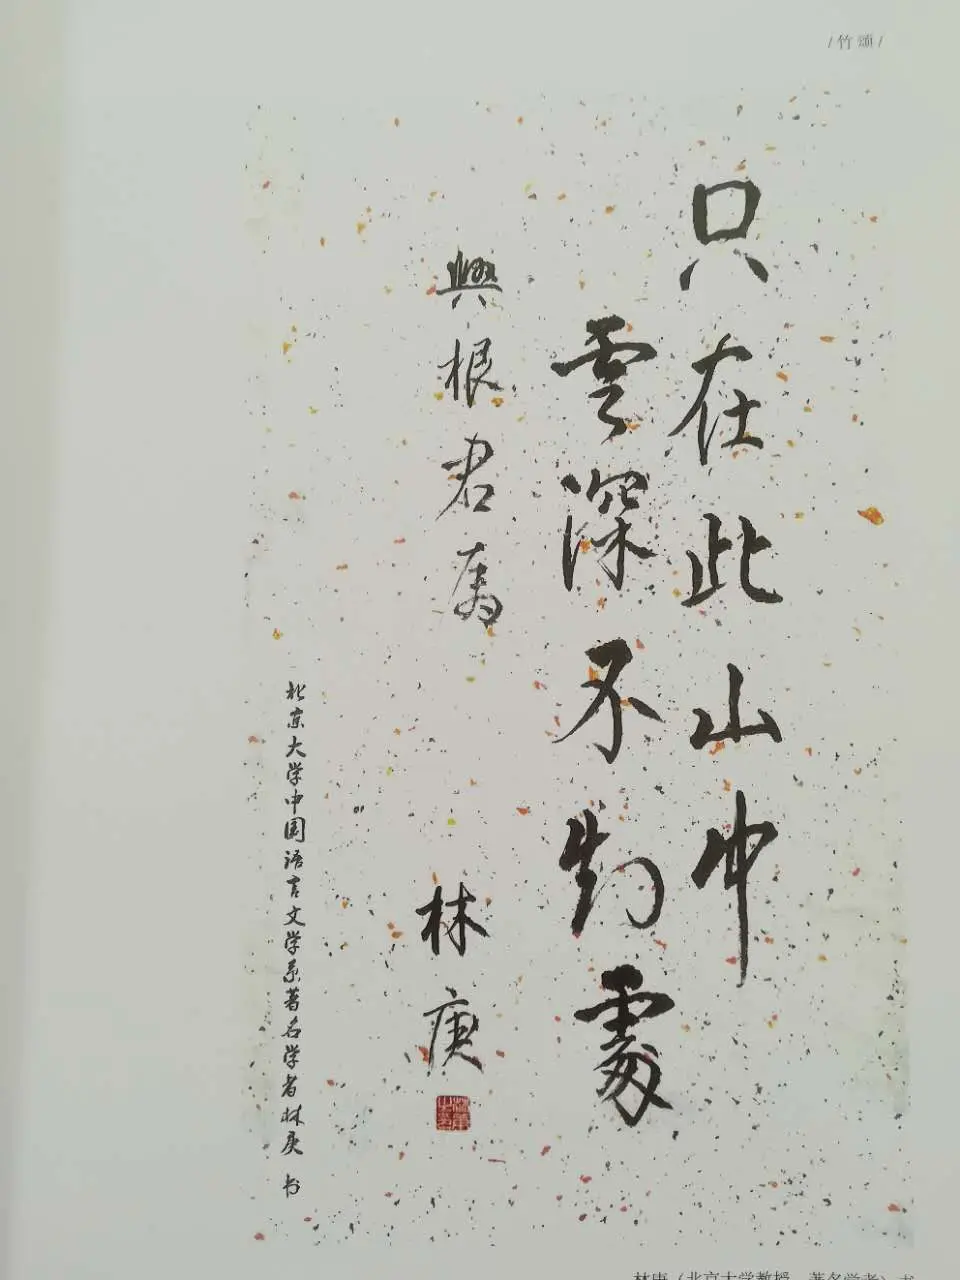 / 竹颂 /
只在此山中
雲深不知處
興根君属
林庚
北京大学中国语言文学系著名学者林庚 书
林庚（北京大学教授、著名学者）书